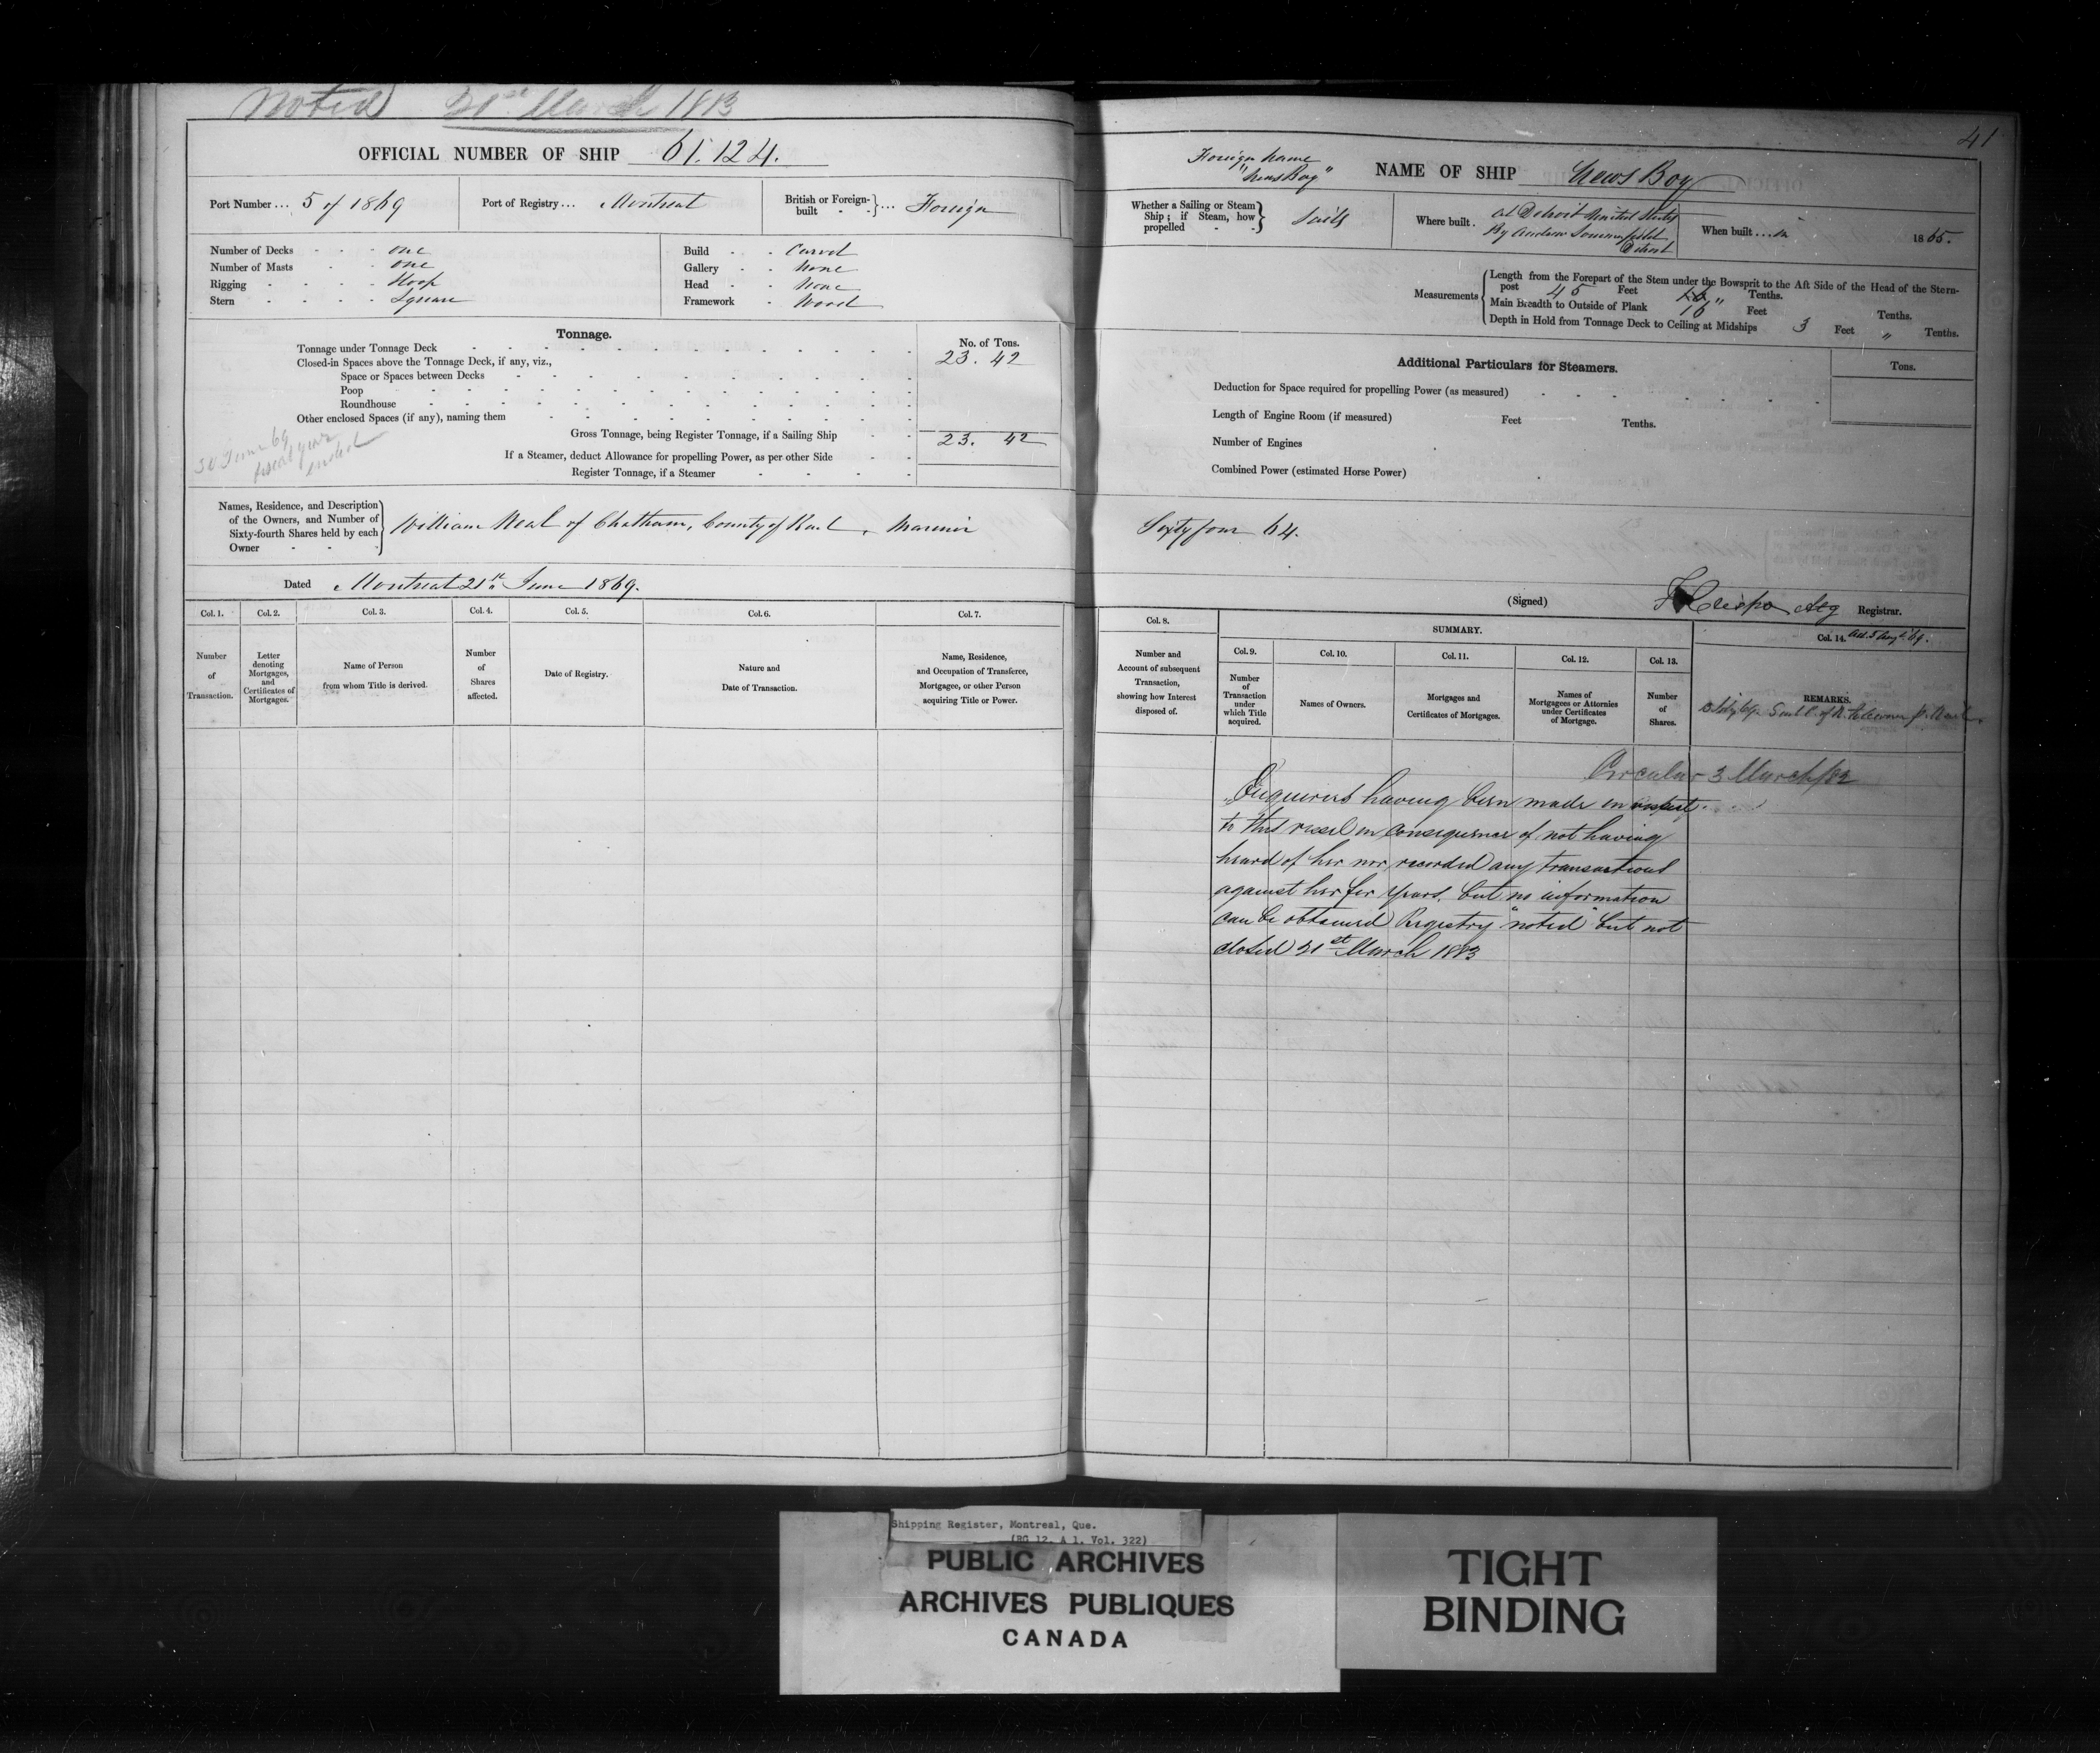 Noted 31st March 1883
OFFICIAL NUMBER OF SHIP 61.124.
Port Number... 5 of 1869 Port of Registry... Montreal British or Foreign-built ... Foreign
Number of Decks one
Number of Masts one
Rigging Sloop
Stern Square
Build Carvel
Gallery None
Head None
Framework Wood
Tonnage.
No. of Tons.
Tonnage under Tonnage Deck 23.42
Closed-in Spaces above the Tonnage Deck, if any, viz.,
Space or Spaces between Decks
Poop
Roundhouse
Other enclosed Spaces (if any), naming them
Gross Tonnage, being Register Tonnage, if a Sailing Ship 23. 42
If a Steamer, deduct Allowance for propelling Power, as per other Side
Register Tonnage, if a Steamer
30 June 69
fiscal year
ended
Names, Residence, and Description
of the Owners, and Number of
Sixty-fourth Shares held by each
Owner
William Neal of Chatham, County of Kent, Mariner
Dated Montreal 21st June 1869.
Col. 1. Col. 2. Col. 3. Col. 4. Col. 5. Col. 6. Col. 7.
Number of Transaction.
Letter denoting Mortgages, and Certificates of Mortgages.
Name of Person from whom Title is derived.
Number of Shares affected.
Date of Registry.
Nature and Date of Transaction.
Name, Residence, and Occupation of Transferee, Mortgagee, or other Person acquiring Title or Power.
41
Foreign Name
"News Boy"
NAME OF SHIP News Boy
Whether a Sailing or Steam Ship; if Steam, how propelled Sails
Where built. at Detroit United States
By Andrew
Detroit
When built... in 1865.
Measurements
Length from the Forepart of the Stem under the Bowsprit to the Aft Side of the Head of the Stern-
post 45 Feet " Tenths.
Main Breadth to Outside of Plank 16 Feet Tenths.
Depth in Hold from Tonnage Deck to Ceiling at Midships 3 Feet " Tenths.
Additional Particulars for Steamers.
Tons.
Deduction for Space required for propelling Power (as measured)
Length of Engine Room (if measured) Feet Tenths.
Number of Engines
Combined Power (estimated Horse Power)
Sixty four 64.
(Signed) Actg Registrar.
Col. 8.
Number and Account of subsequent Transaction, showing how Interest disposed of.
SUMMARY.
Col. 9. Col. 10. Col. 11. Col. 12. Col. 13. Col. 14.
Number of Transaction under which Title acquired.
Names of Owners.
Mortgages and Certificates of Mortgages.
Names of Mortgagees or Attornies under Certificates of Mortgage.
Number of Shares.
REMARKS.
Circular 3 March/82
Enquiries having been made in respect
to this vessel in consequence of not having
heard of her nor recorded any transactions
against her for years, but no information
can be obtained Registry "noted" but not
closed 31st March 1883
Shipping Register, Montreal, Que.
(RG 12, A 1, Vol. 322)
PUBLIC ARCHIVES
ARCHIVES PUBLIQUES
CANADA
TIGHT
BINDING